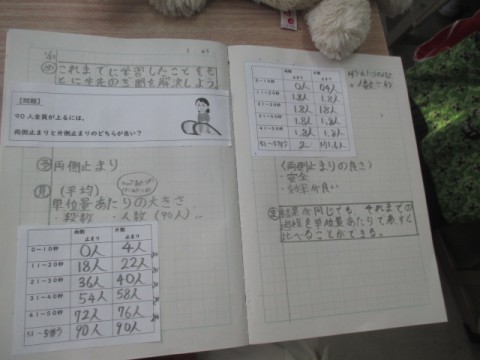 これまでに学習したことをも
とに先生のぎ問を解決しよう。
【問題】
90人全員が上るには、
両側止まりと片側止まりのどちらが良い？
両側止まり
(平均)
単位量あたりの大きさ
人数 (90人)
両側止まり 片側止まり
0～10秒 0人 4人
11～20秒 18人 22人
21～30秒 36人 40人
31～40秒 54人 58人
41～50秒 72人 76人
90人 90人
両側 片側
0人
11～20秒 1.8人 1.8人
21～30秒 1.8人 1.8人
31～40秒 1.8人 1.8人
41～50秒 1.8人 1.8人
(両側止まりの良さ)
・安全
・効率が良い
結果が同じでも、それまでの
過程を単位量あたりで表すと
比べることができる。